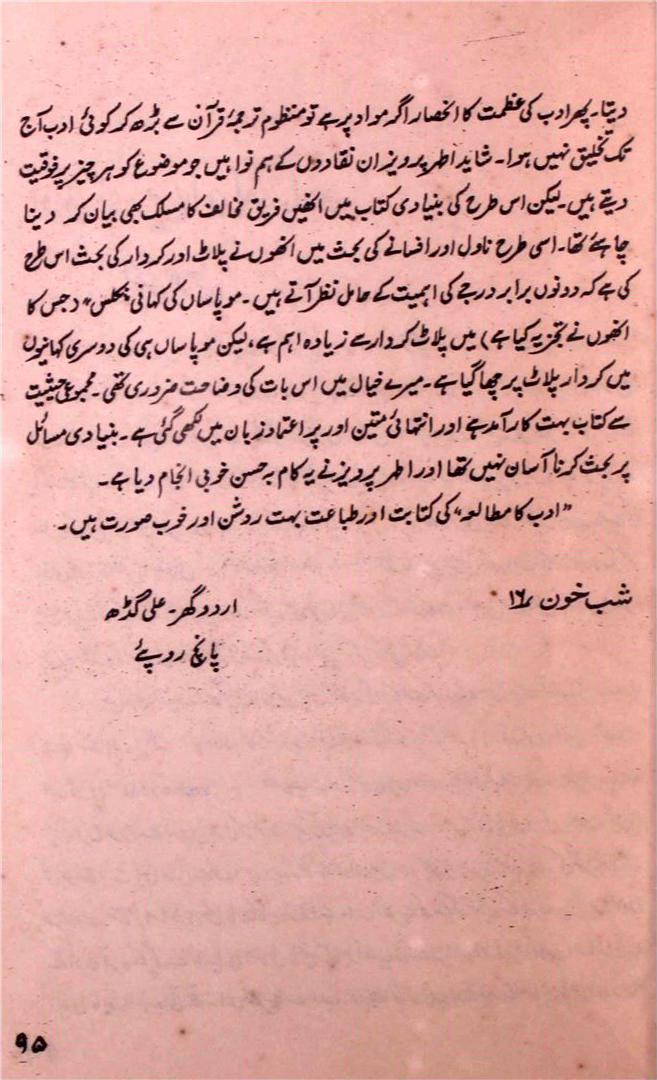 دیتا۔ پھر ادب کی عظمت کا انحصار اگر مواد پر ہے تو منظوم ترجمۂ قرآن سے بڑھ کر کوئی ادب آج
تک تخلیق نہیں ہوا۔ شاید اطہر پرویز ان نقادوں کے ہم نوا ہیں جو موضوع کو ہر چیز پر فوقیت
دیتے ہیں۔ لیکن اس طرح کی بنیادی کتاب میں انھیں فریق مخالف کا مسلک بھی بیان کر دینا
چاہئے تھا۔ اسی طرح ناول اور افسانے کی بحث میں انھوں نے پلاٹ اور کردار کی بحث اس طرح
کی ہے کہ دونوں برابر درجے کی اہمیت کے حامل نظر آتے ہیں۔ موپاساں کی کہانی "نکلس" (جس کا
انھوں نے تجزیہ کیا ہے) میں پلاٹ کردار سے زیادہ اہم ہے، لیکن موپاساں ہی کی دوسری کہانیوں
میں کردار پلاٹ پر چھا گیا ہے۔ میرے خیال میں اس بات کی وضاحت ضروری تھی۔ مجموعی حیثیت
سے کتاب بہت کارآمد ہے اور انتہائی متین اور پر اعتماد زبان میں لکھی گئی ہے۔ بنیادی مسائل
پر بحث کرنا آسان نہیں تھا اور اطہر پرویز نے یہ کام بہ حسن خوبی انجام دیا ہے۔
"ادب کا مطالعہ" کی کتابت اور طباعت بہت روشن اور خوب صورت ہیں۔
شب خون ۱۶؍
اردو گھر۔ علی گڈھ
پانچ روپئے
۹۵